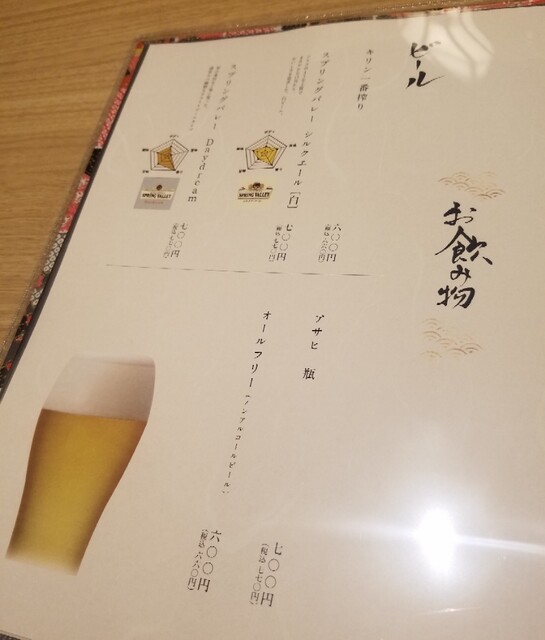 お飲み物
ビール
キリン一番搾り
六〇〇円
(税込 六六〇円)
スプリングバレー シルクエール[白]
七〇〇円
(税込 七七〇円)
SPRING VALLEY
スプリングバレー Daydream
七〇〇円
(税込 七七〇円)
SPRING VALLEY
アサヒ 瓶
七〇〇円
(税込 七七〇円)
オールフリー(ノンアルコールビール)
六〇〇円
(税込 六六〇円)